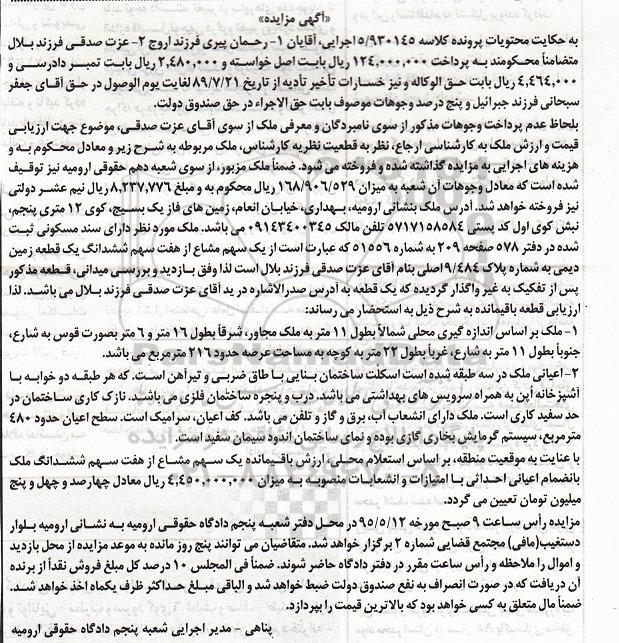 «آگهی مزایده»
به حکایت محتویات پرونده کلاسه ۵/۹۳۰۱۴۵ اجرایی، آقایان ۱- رحمان پیری فرزند اروج ۲- عزت صدقی فرزند بلال
متضامناً محکومند به پرداخت ۱۲۴,۰۰۰,۰۰۰ ریال بابت اصل خواسته و ۲,۴۸۰,۰۰۰ ریال بابت تمبر دادرسی و
۴,۴۶۴,۰۰۰ ریال بابت حق الوکاله و نیز خسارات تأخیر تأدیه از تاریخ ۸۹/۷/۲۱ لغایت یوم الوصول در حق آقای جعفر
سبحانی فرزند جبرائیل و پنج درصد وجوهات موصوف بابت حق الاجراء در حق صندوق دولت.
بلحاظ عدم پرداخت وجوهات مذکور از سوی نامبردگان و معرفی ملک از سوی آقای عزت صدقی، موضوع جهت ارزیابی
قیمت و ارزش ملک به کارشناسی ارجاع، نظر به قطعیت نظریه کارشناس، ملک مربوطه به شرح زیر و معادل محکوم به و
هزینه های اجرایی به مزایده گذاشته شده و فروخته می شود. ضمناً ملک مزبور، از سوی شعبه دهم حقوقی ارومیه نیز توقیف
شده است که معادل وجوهات آن شعبه به میزان ۱۶۸/۹۰۶/۵۲۹ ریال محکوم به و مبلغ ۸,۲۳۷,۷۷۶ ریال نیم عشر دولتی
نیز فروخته خواهد شد. آدرس ملک بنشانی ارومیه، بهداری، خیابان انعام، زمین های فاز یک بسیج، کوی ۱۲ متری پنجم،
نبش کوی اول کد پستی ۵۷۱۷۱۵۸۵۸۴ تلفن مالک ۰۹۱۴۳۴۰۰۳۴۵ می باشد. ملک مورد نظر دارای سند مسکونی ثبت
شده در دفتر ۵۷۸ صفحه ۲۰۹ به شماره ۵۱۵۵۶ که عبارت است از یک سهم مشاع از هفت سهم ششدانگ یک قطعه زمین
دیمی به شماره پلاک ۹/۴۸۴ اصلی بنام آقای عزت صدقی فرزند بلال است لذا وفق بازدید و بررسی میدانی، قطعه مذکور
پس از تفکیک به غیر واگذار گردیده که یک قطعه به آدرس صدرالاشاره در ید آقای عزت صدقی فرزند بلال می باشد. لذا
ارزیابی قطعه باقیمانده به شرح ذیل به استحضار می رساند:
۱- ملک بر اساس اندازه گیری محلی شمالاً بطول ۱۱ متر به ملک مجاور، شرقاً بطول ۱۶ متر و ۶ متر بصورت قوس به شارع،
جنوباً بطول ۱۱ متر به شارع، غرباً بطول ۲۲ متر به کوچه به مساحت عرصه حدود ۲۱۶ مترمربع می باشد.
۲- اعیانی ملک در سه طبقه شده است اسکلت ساختمان بنایی با طاق ضربی و تیرآهن است. که هر طبقه دو خوابه با
آشپزخانه اپن به همراه سرویس های بهداشتی می باشد. درب و پنجره ساختمان فلزی می باشد. نازک کاری ساختمان در
حد سفید کاری است. ملک دارای انشعاب آب، برق و گاز و تلفن می باشد. کف اعیان، سرامیک است. سطح اعیان حدود ۴۸۰
مترمربع، سیستم گرمایش بخاری گازی بوده و نمای ساختمان اندود سیمان سفید است.
با عنایت به موقعیت منطقه، بر اساس استعلام محلی، ارزش باقیمانده یک سهم مشاع از هفت سهم ششدانگ ملک
بانضمام اعیانی احداثی با امتیازات و انشعابات منصوبه به میزان ۴,۴۵۰,۰۰۰,۰۰۰ ریال معادل چهارصد و چهل و پنج
میلیون تومان تعیین می گردد.
مزایده رأس ساعت ۹ صبح مورخه ۹۵/۵/۱۲ در محل دفتر شعبه پنجم دادگاه حقوقی ارومیه به نشانی ارومیه بلوار
دستغیب(مافی) مجتمع قضایی شماره ۲ برگزار خواهد شد. متقاضیان می توانند پنج روز مانده به موعد مزایده از محل بازدید
و اموال را ملاحظه و رأس ساعت مقرر در دفتر دادگاه حاضر شوند. ضمناً فی المجلس ۱۰ درصد کل مبلغ فروش نقداً از برنده
آن دریافت که در صورت انصراف به نفع صندوق دولت ضبط خواهد شد و الباقی مبلغ حداکثر ظرف یکماه اخذ خواهد شد.
ضمناً مال متعلق به کسی خواهد بود که بالاترین قیمت را بپردازد.
پناهی - مدیر اجرایی شعبه پنجم دادگاه حقوقی ارومیه